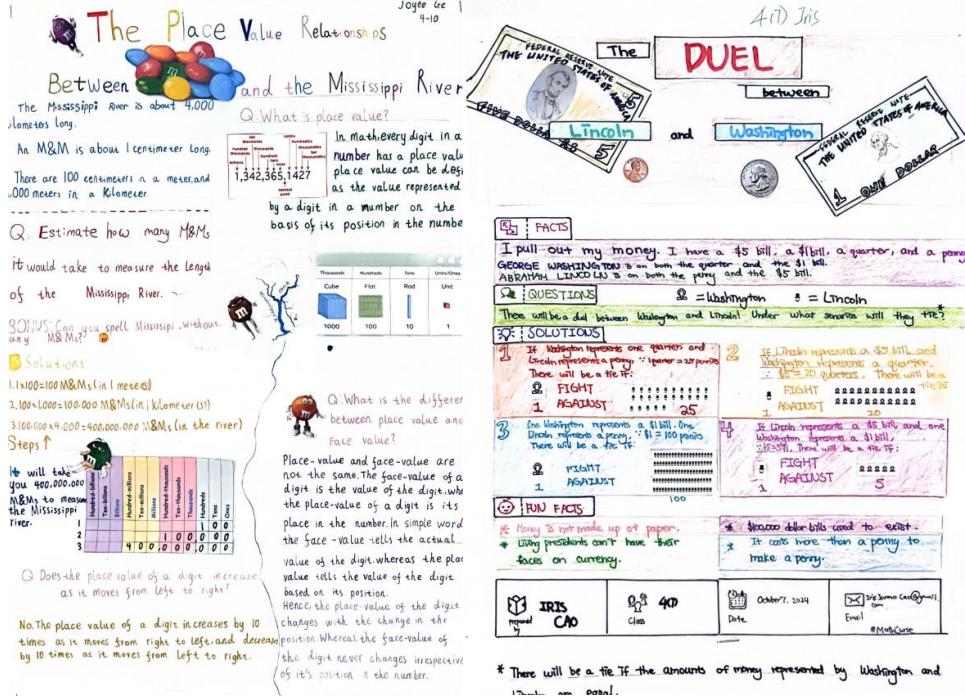 Joyee Ge
4-10
The Place Value Relationships
Between and the Mississippi River
The Mississippi River is about 4,000
kilometers long.
An M&M is about 1 centimeter long.
There are 100 centimeters in a meter, and
,000 meters in a Kilometer.
Q. Estimate how many M&Ms
it would take to measure the Length
of the Mississippi River.
BONUS: Can you spell Mississipi without
any M&Ms?
Solutions
1. 1x100=100 M&Ms (in 1 meters)
2. 100x1,000=100,000 M&Ms (in 1 kilometer(s))
3. 100,000 x4,000=400,000,000 M&Ms (in the river)
Steps ↑
It will take
you 400,000,000
M&Ms to measure
the Mississippi
river.
Hundred-billions
Ten-billions
Billions
Hundred-millions
Ten-millions
Millions
Hundred-thousands
Ten-thousands
Thousands
Hundreds
Tens
Ones
1 1 0 0
2 1 0 0 0 0 0
3 4 0 0 0 0 0 0 0 0
Q Does the place value of a digit increase
as it moves from left to right?
No. The place value of a digit increases by 10
times as it moves from right to left, and decrease
by 10 times as it moves from left to right.
Q. What is place value?
1,342,365.1427
In math, every digit in a
number has a place valu
place value can be defi
as the value represented
by a digit in a number on the
basis of its position in the numbe
Thousands Hundreds Tens Units/Ones
Cube Flat Rod Unit
1000 100 10 1
Q. What is the differen
between place value and
Face value?
Place-value and face-value are
not the same. The face-value of a
digit is the value of the digit, whe
the place-value of a digit is its
place in the number. In simple word
the face-value tells the actual
value of the digit. whereas the plac
value tells the value of the digit
based on its position.
Hence, the place-value of the digit
changes with the change in the
position. Whereas the face-value of
the digit never changes irrespective
of it's position in the number.
4(7) Iris
The DUEL
between
Lincoln and Washington
FEDERAL RESERVE NOTE
THE UNITED STATES OF AMERICA
FIVE DOLLARS 5
5
FEDERAL RESERVE NOTE
THE UNITED STATES OF AMERICA
1 ONE DOLLAR
FACTS
I pull out my money. I have a $5 bill, a $1 bill, a quarter, and a penny
GEORGE WASHINGTON is on both the quarter and the $1 bill.
ABRAHAM LINCOLN is on both the penny and the $5 bill.
QUESTIONS
=Washington =Lincoln
There will be a duel between Washington and Lincoln! Under what scenarios will they tie?*
SOLUTIONS
1 If Washington represents one quarter and
Lincoln represents a penny, ∵ 1 quarter = 25 pennies
There will be a tie if:
FIGHT
1 AGAINST 25
2 If Lincoln represents a $5 bill and
Washington represents a quarter.
∵ $5 = 20 quarters. There will be a
tie if
FIGHT
1 AGAINST 20
3 One Washington represents a $1 bill. One
Lincoln represents a penny. ∵ $1 = 100 pennies
There will be a tie if:
FIGHT
1 AGAINST
100
4 If Lincoln represents a $5 bill, and one
Washington represents a $1 bill,
There will be a tie if:
FIGHT
1 AGAINST 5
FUN FACTS
* Money is not made up of paper.
* Living presidents can't have their
faces on currency.
* $100,000 dollar bills used to exist.
* It costs more than a penny to
make a penny.
prepared by IRIS CAO
Class
October 7, 2024
Date
Email
#MathCurse
* There will be a tie if the amounts of money represented by Washington and
Lincoln are equal.